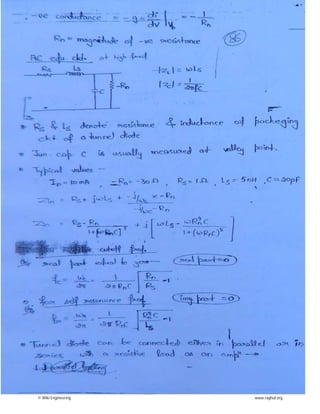 -ve conductance = -g = di/dv |Vv = -1/Rn
Rn = magnitude of -ve resistance
86
AC equ. ckt. at high freq
Rs Ls |ZL| = ωLs
C -Rn |Zc| = 1/2πfC
* Rs & Ls denote resistance & inductance of packeging
ckt of a tunnel diode
* Jun. cap C is usually measured at valley point.
* Typical values —
Ip = 10 mA, -Rn = -30Ω, Rs = 1Ω, Ls = 5nH, C = 20pF
Zin = Rs + jωLs + (-j/ωc × -Rn) / (-j/ωc - Rn)
Zin = Rs - Rn / 1+(ωRnC)² + j [ωLs - ωRn²C / 1+(ωRnC)²]
cutoff freq.
real part equal to zero — real part = 0
fc = ωc/2π = 1/2πRnC √(Rn/Rs - 1)
* for self resonance freq. (img. part = 0)
fo = ωo/2π = 1/2πRnC √(Rn²C/Ls - 1)
* Tunnel diode can be connected either in parallel or in
series with a resistive load as an ampr →
1.
© Wiki Engineering www.raghul.org